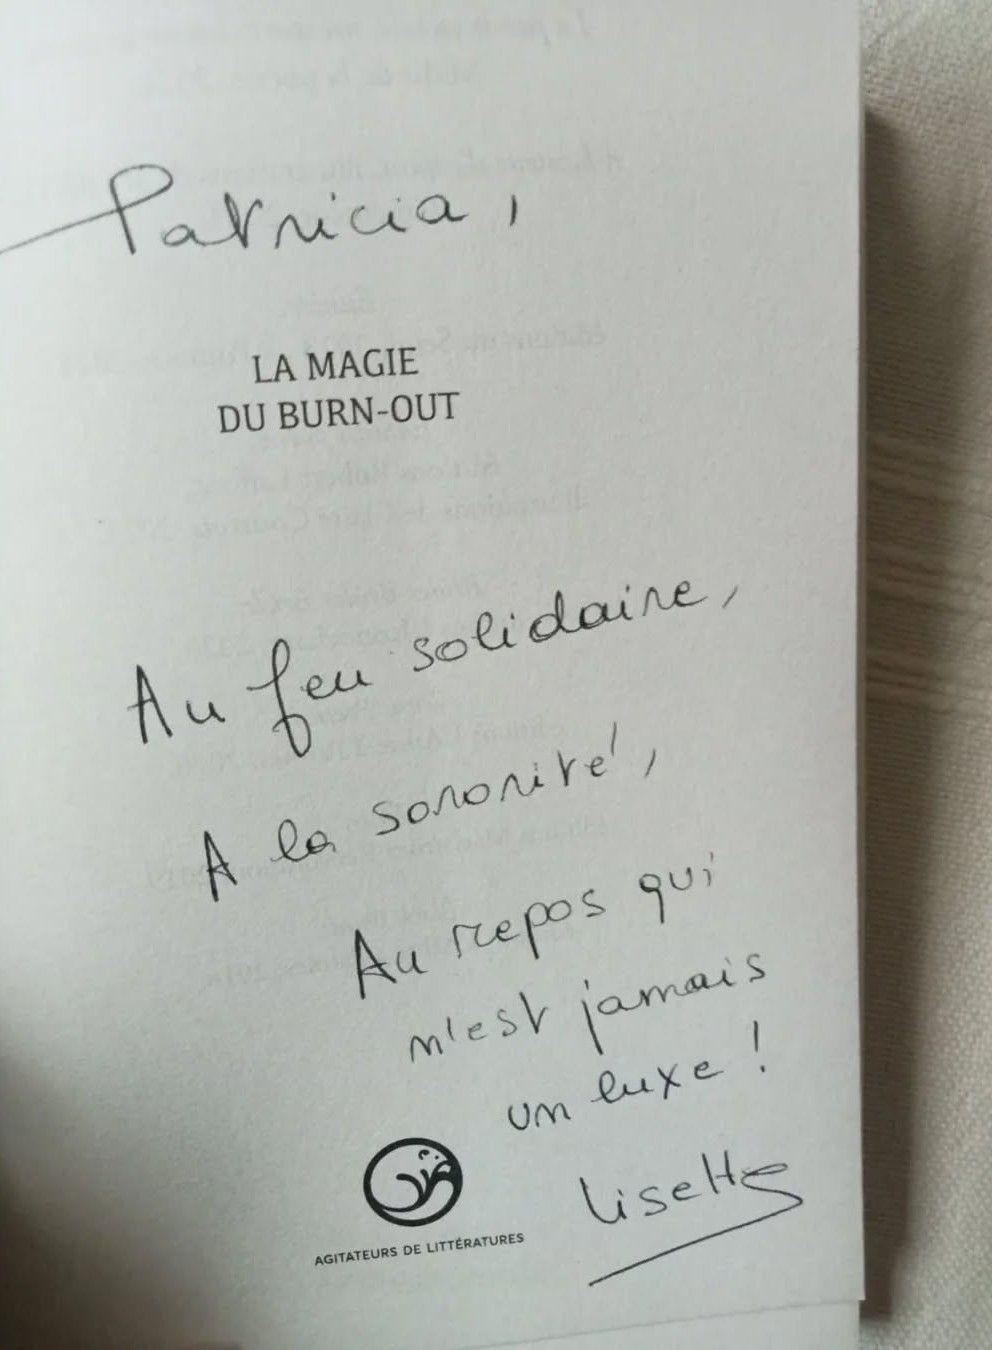 Patricia,
LA MAGIE
DU BURN-OUT
Au feu solidaire,
A la sororité,
Au repos qui
n'est jamais
un luxe !
Lisette
AGITATEURS DE LITTÉRATURES